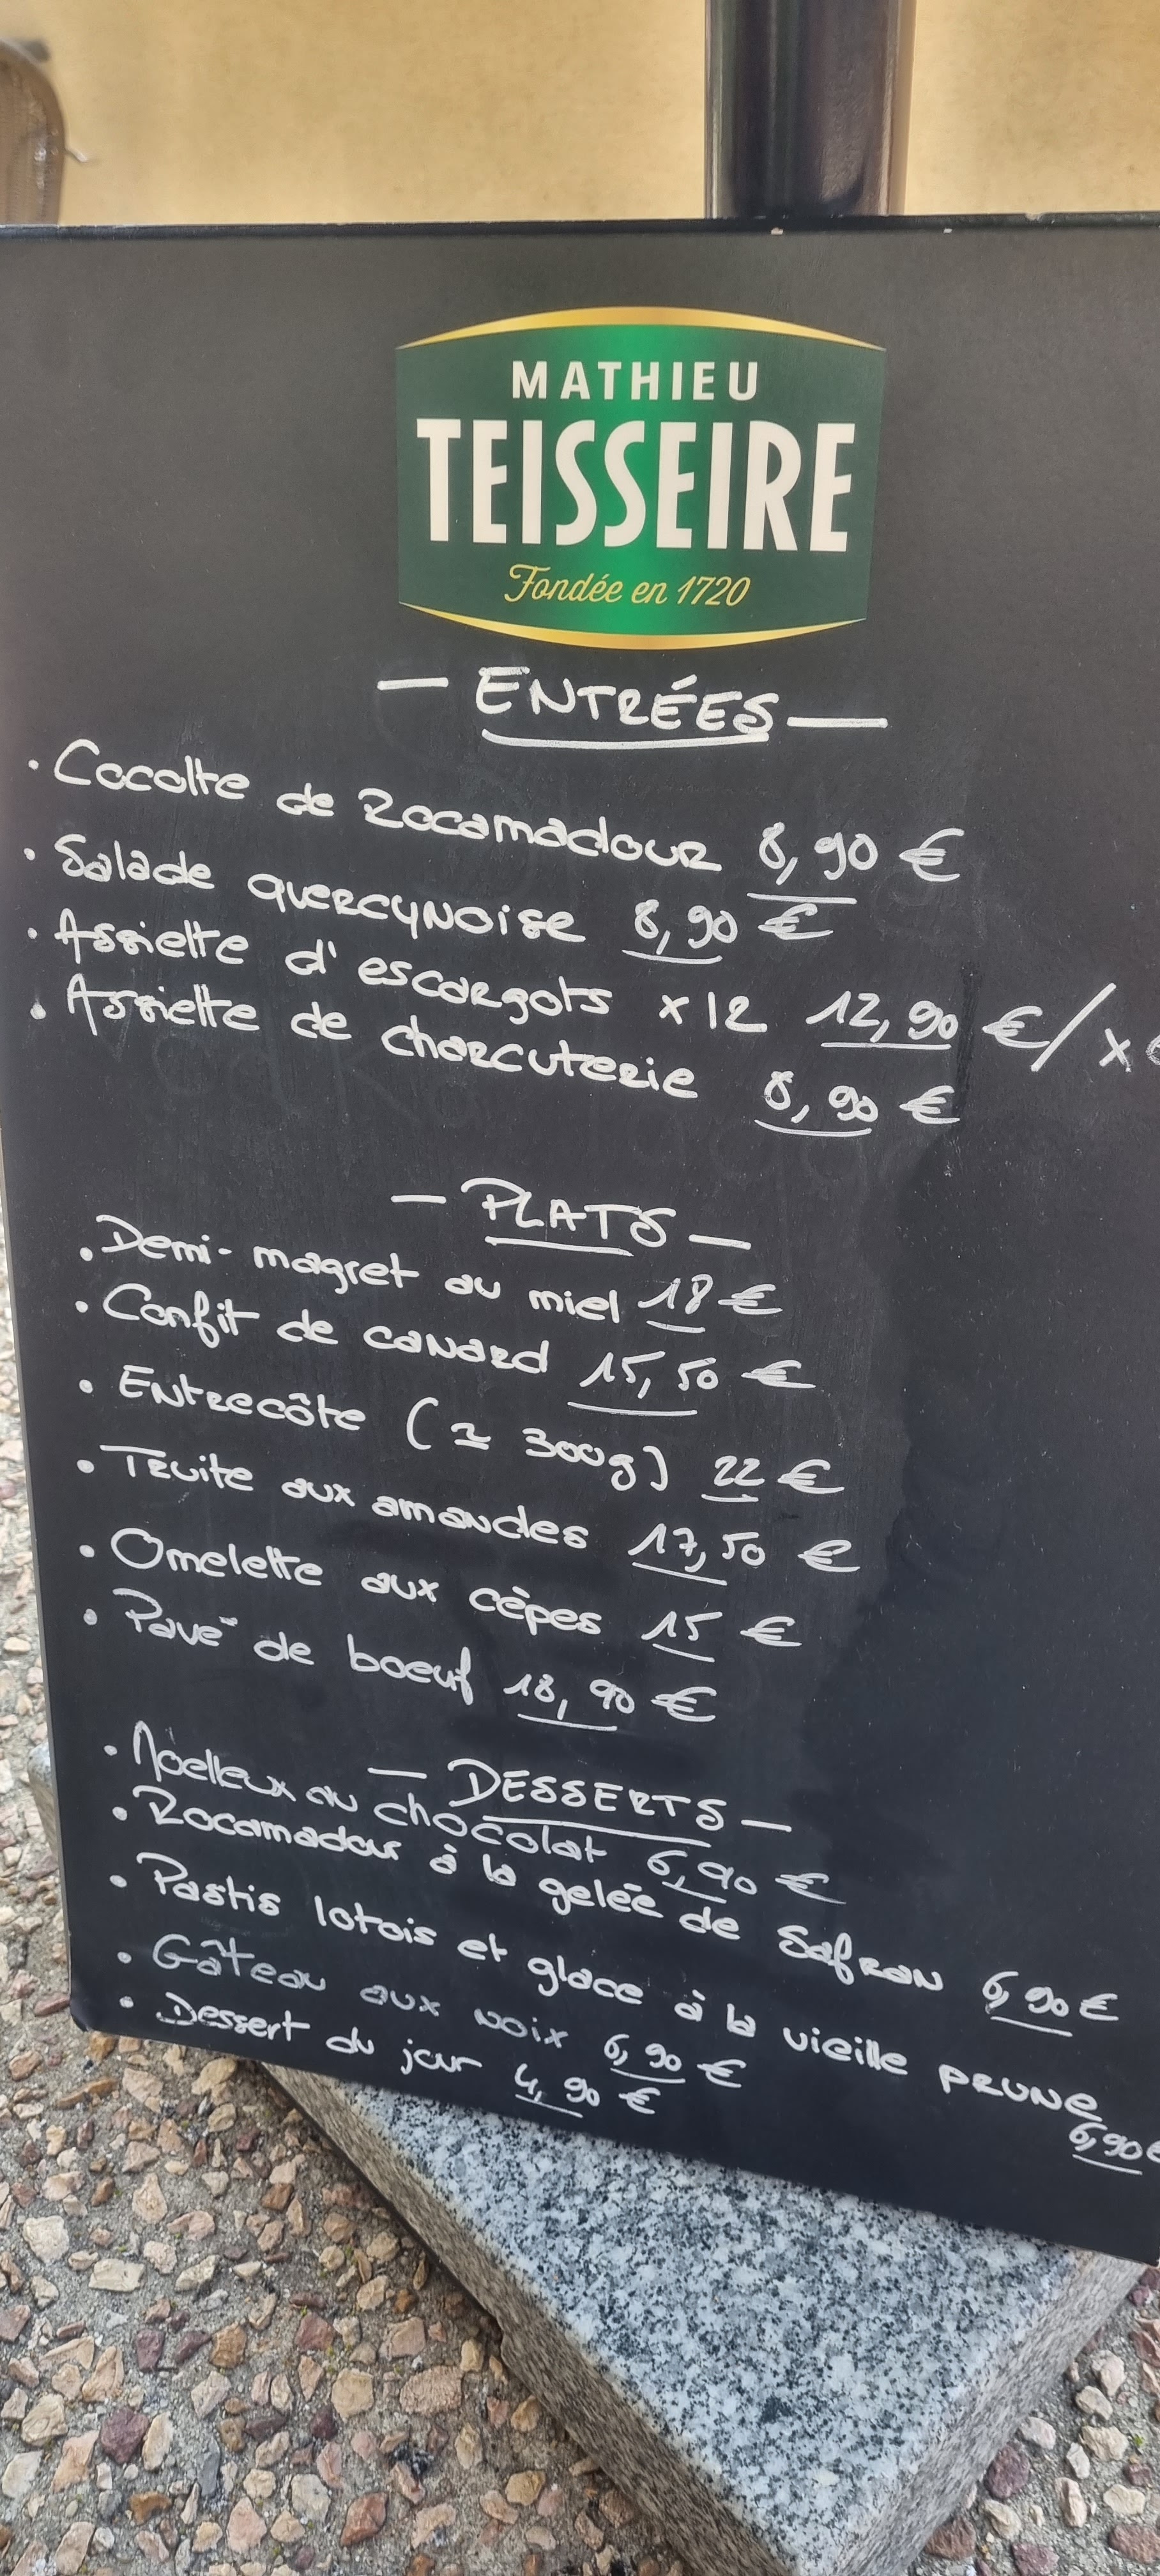 MATHIEU
TEISSEIRE
Fondée en 1720
— ENTRÉES —
• Cocotte de Rocamadour 8,90 €
• Salade quercynoise 8,90 €
• Assiette d'escargots x12 12,90 € / x
• Assiette de charcuterie 8,90 €
— PLATS —
• Demi-magret au miel 18 €
• Confit de canard 15,50 €
• Entrecôte (± 300g) 22 €
• Truite aux amandes 17,50 €
• Omelette aux cèpes 15 €
• Pavé de boeuf 18,90 €
— DESSERTS —
• Moelleux au chocolat 6,90 €
• Rocamadour à la gelée de Safran 6,90 €
• Pastis lotois et glace à la vieille prune
6,90 €
• Gâteau aux noix 6,90 €
• Dessert du jour 4,90 €